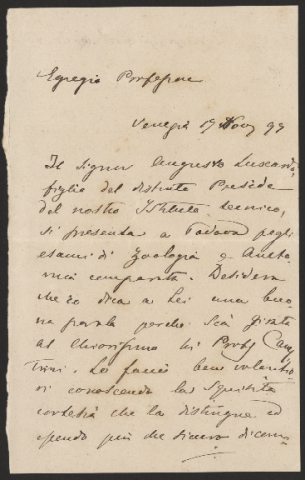 Egregio Professore
Venezia 17 Nov 99
Il Signor Augusto Luscardo
figlio del distinto Preside
del nostro Istituto tecnico,
si presenta a Padova pegli
esami di Zoologia e Anato-
mia comparata. Desidera
che io dica a Lei una buo-
na parola perchè sia girata
al Chiarissimo Prof Cane
trini. Lo faccio ben volentie
ri conoscendo la squisita
cortesia che la distingue ed
essendo più che sicuro